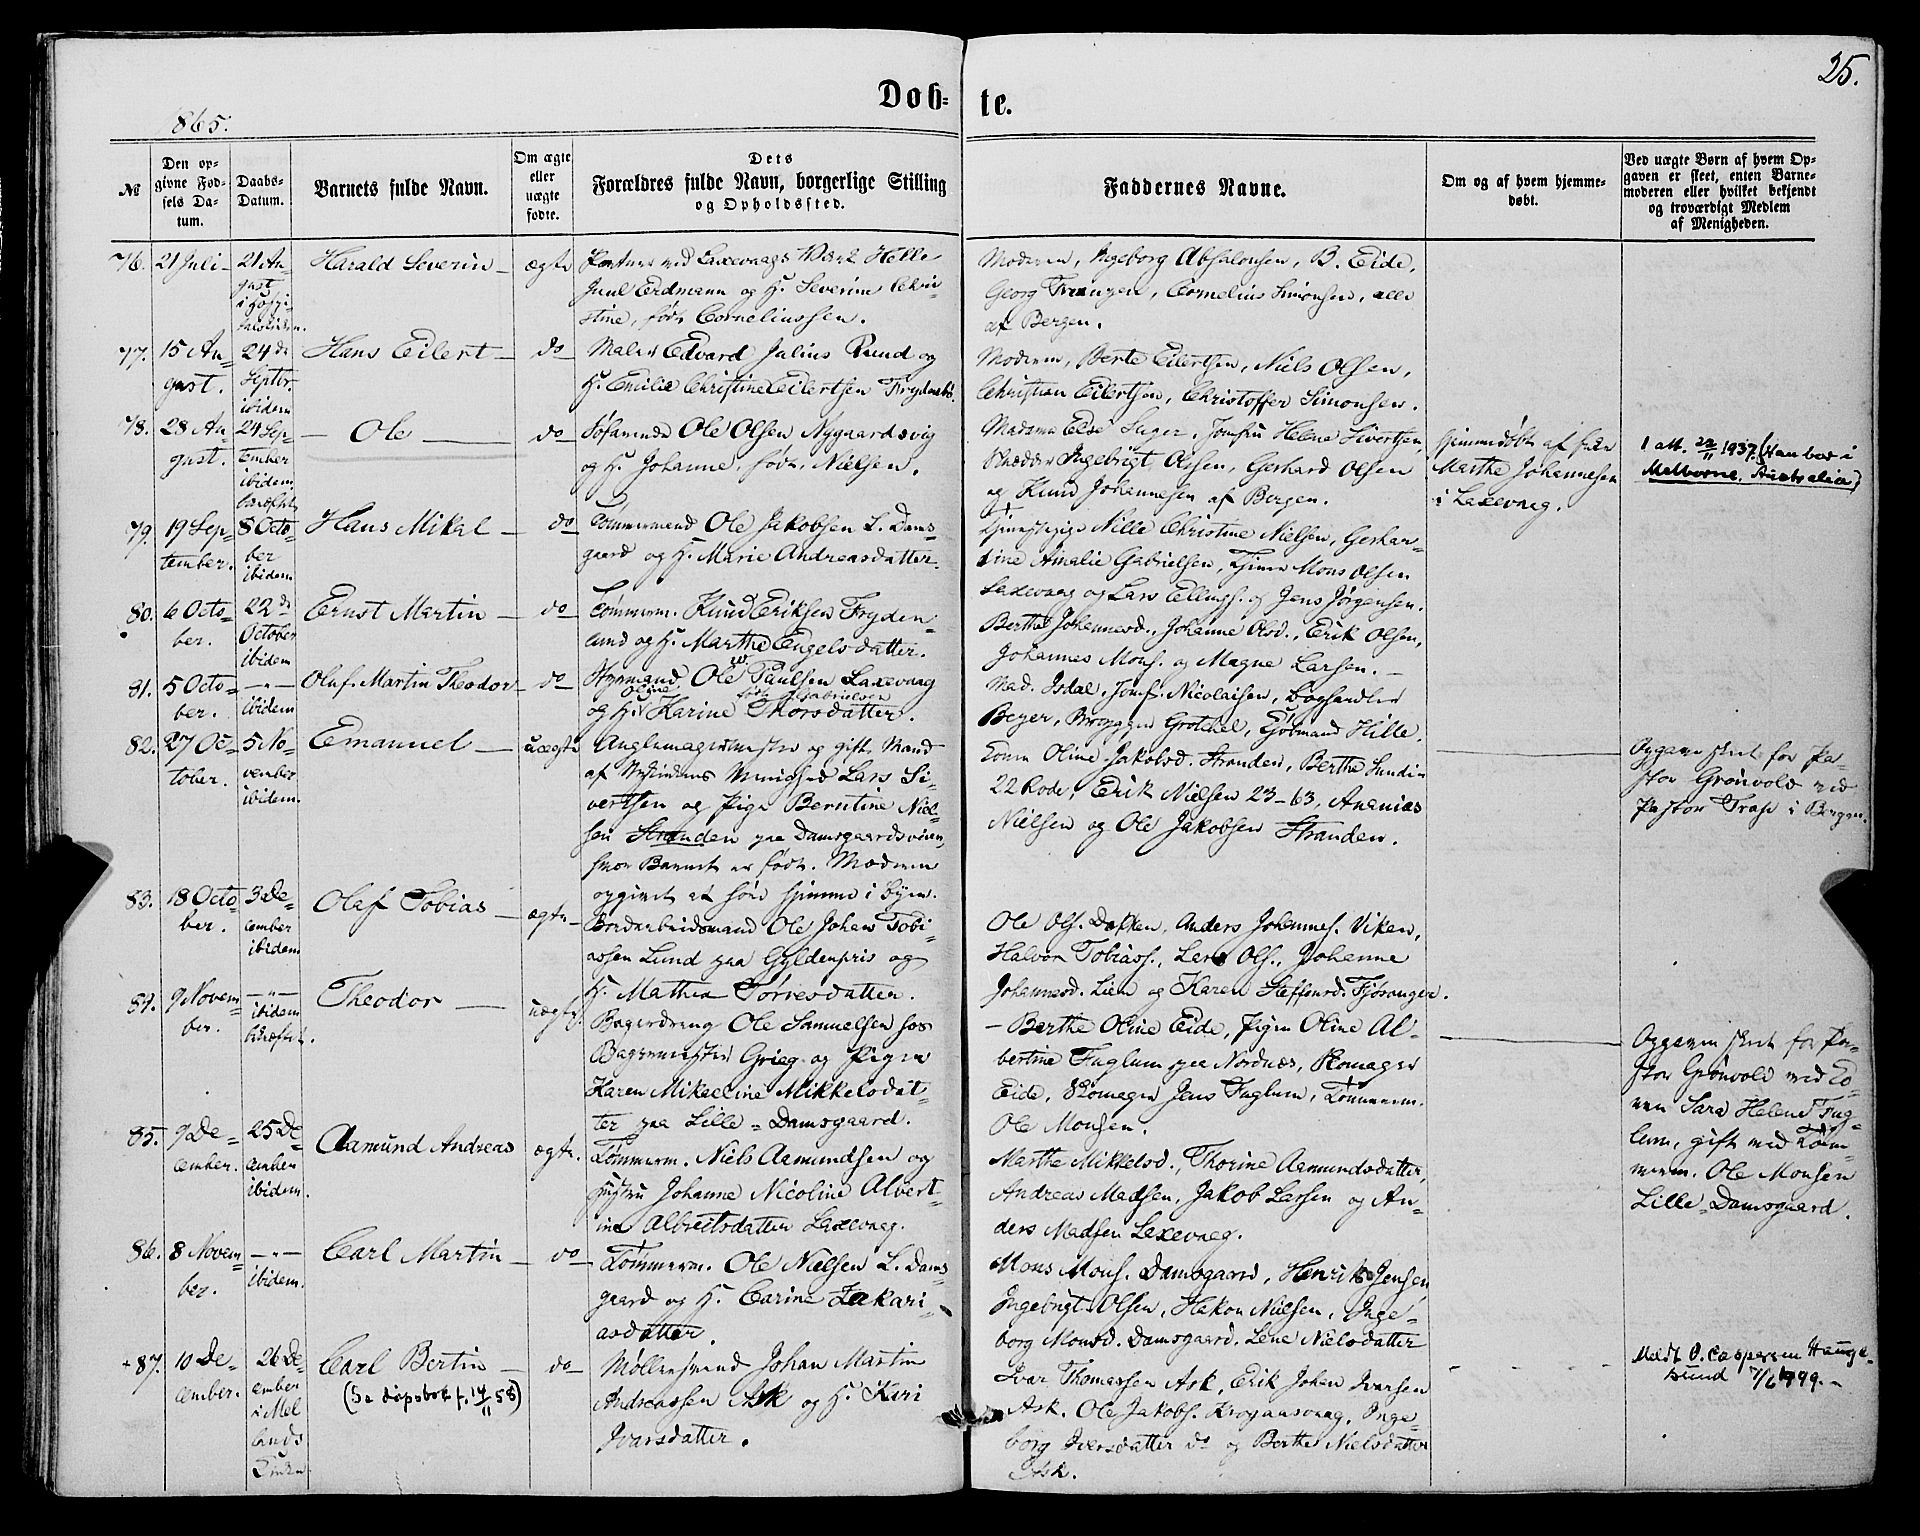 25.
Døb=te.
1865.
№
Den op-
givne Fød-
sels Da-
tum.
Daabs-
Datum.
Barnets fulde Navn.
Om ægte
eller
uægte
fødte.
Dets
Forældres fulde Navn, borgerlige Stilling
og Opholdssted.
Faddernes Navne.
Om og af hvem hjemme-
døbt.
Ved uægte Børn af hvem Op-
gaven er skeet, enten Barne-
moderen eller hvilket bekjendt
og troværdigt Medlem
af Menigheden.
76.
21 Juli
21 Au-
gust
i Hospi-
Harald Severin
ægte
ved Laxevaags Værk Helle
Juul Erdmann og H. Severine Chri-
stine, født Corneliussen.
Moderen, Ingeborg Absalonsen, B. Eide,
Georg Franzen, Cornelius Simonsen, alle
af Bergen.
77.
15 Au-
gust.
24de
Septbr.
ibidem
Hans Eilert
do
Maler Edvard Julius Rund og
H. Emilie Christine Eilertsen Frydenbø.
Moderen, Berte Eilertsen, Niels Olsen,
Christian Eilertsen, Christoffer Simonsen.
78.
28 Au-
gust.
24 Sep-
tember
ibidem
Ole
do
Søfarende Ole Olsen Nygaardsvig
og H. Johanne, født Nielsen.
Madame Else Sager, Jomfru Helene Sivertsen,
Skrædder Ingebrigt Olsen, Gerhard Olsen
og Knud Johannesen af Bergen.
Hjemmedøbt af
Marthe Johannesen
i Laxevaag.
1 att. 22/11 1937. (Han bor i
Melborne, Australia)
79.
19 Sep-
tember.
8 Octo-
ber
ibidem
Hans Mikal
do
Tømmermand Ole Jakobsen L. Dams-
gaard og H. Marie Andreasdatter.
Nille Christine Nielsen, Gerhar-
dine Amalie Gabrielsen, Mons Olsen
Laxevaag og Lars Ellings. og Jens Jørgensen.
80.
6 Octo-
ber.
22de
October
ibidem
Ernst Martin
do
Tømmerm. Knud Eriksen Fryden-
lund og H. Marthe Engelsdatter.
Berthe Johannesd., Johanne Olsd., Erik Olsen,
Johannes Mons. og Magne Larsen.
81.
5 Octo-
ber.
-"-
ibidem
Oluf Martin Theodor
do
Styrmand Ole W. Paulsen Laxevaag
og H. Oline Karine Thorsdatter. født Gabrielsen
Mad. Isdal, Jomf. Nicolaisen, Boghandler
Beyer, Brygger Grotchel, Kjøbmand Hille.
82.
27 Oc-
tober.
5 No-
vember
ibidem
Emanuel
uægte
Nøglemagermester og gift Mand
af Menighed Lars Si-
vertsen og Pige Berntine Niel-
sen Stranden paa Damsgaardsveien,
hvor Barnet er født. Moderen
opgivet at høre hjemme i byen.
Konen Oline Jakobsd. Stranden, Berthe Sundin
22 Rode, Erik Nielsen 23-63, Ananias
Nielsen og Ole Jakobsen Stranden.
Opgaven skeet for Pa-
stor Grönvold ved
Pastor Trap i Bergen.
83.
18 Octo-
ber.
3 De-
cember
ibidem
Olaf Tobias
ægte
Bordarbeidsmand Ole Johan Tobi-
assen Lund paa Gyldenpris og
H. Mathea Sørresdatter.
Ole Ols. Dokken, Anders Johannes. Viken,
Halvor Tobiass., Lars Ols., Johanne
Johannesd. Lien og Karen Steffensd. Fjøsanger.
84.
9 Novem-
ber.
-"-
ibidem
bekræftet.
Theodor
uægte
Bagerdreng Ole Samuelsen hos
Bagermester Grieg og Pigen
Karen Mikaeline Mikkelsdat-
ter paa Lille-Damsgaard.
Berthe Oline Eide, Pigen Oline Al-
bertine Fuglum paa Nordnæs, Skomager
Eide, Skomager Jens Fuglum, Tømmerm.
Ole Monsen.
Opgaven skeet for Pa-
stor Grönvold med Ko-
nen Sara Helene Fug-
lum, gift med Tøm-
merm. Ole Monsen
Lille-Damsgaard.
85.
9 De-
cember.
25 De-
cember
ibidem.
Aamund Andreas
ægte.
Tømmerm. Niels Aamundsen og
hustru Johanne Nicoline Alvert-
ine Albretsdatter Laxevaag.
Marthe Mikkelsd., Thorine Aamundsdatter,
Andreas Madsen, Jakob Larsen og An-
ders Madsen Laxevaag.
86.
8 Novem-
ber.
-"-
ibidem.
Carl Martin
do
Tømmerm. Ole Nielsen L. Dams-
gaard og H. Carine Zakari-
asdatter.
Mons Mons. Damsgaard, Henrik Jensen,
Ingebrigt Olsen, Hakon Nielsen, Inge-
borg Monsd. Damsgaard, Lene Nielsdatter
+87.
10 De-
cember.
26 De-
cember
i Mel-
lands
Kirken
Carl Bertin
(Se dåpsbok f. 14/11 58)
do
Møllersvend Johan Martin
Andreassen Ask og H. Kari
Ivarsdatter.
Ivar Thomassen Ask, Erik Johan Ivarsen
Ask, Ole Jakobs. Kroganesvaag, Inge-
borg Iversdatter do og Berthe Nielsdatter
Ask.
Meldt O. Caspersen Hauge-
sund